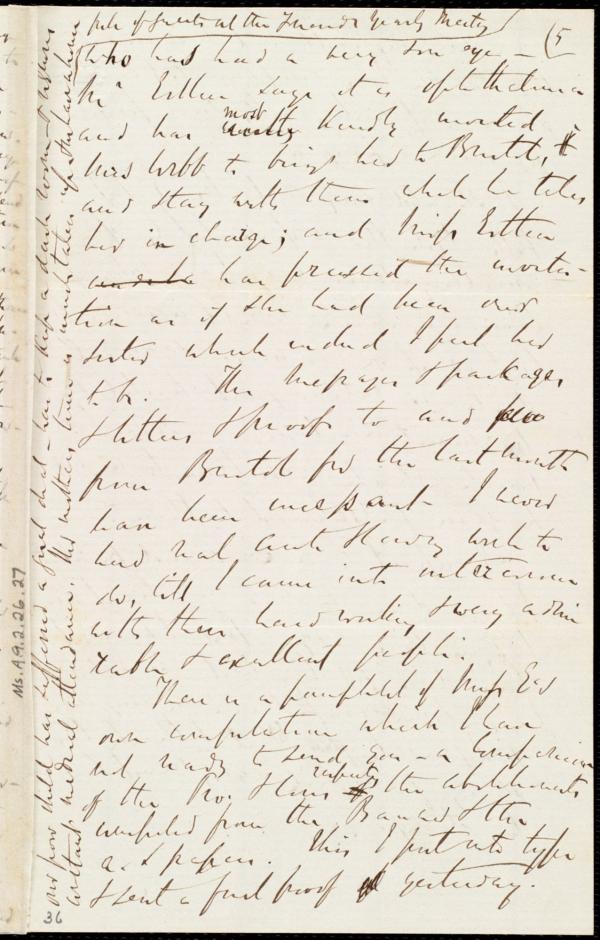 pile of sheets at the Friends Yearly Meeting
(5
who has had a very sore eye —
Mr Estlin says it is ophthalmia
and has most kindly invited
Mrs Webb to bring her to Bristol,
and stay with them while he takes
her in charge; and Miss Estlin
has pressed the invita-
tion as if she had been own
sister which indeed I feel her
to be. The messages & packages
& letters & proofs to and fro
from Bristol for the last month
have been incessant — I never
had such work to
do, till I came into intercourse
with these hard working & very admi
rable & excellent people.
There is a pamphlet of Miss E's
own compilation which I have
not ready to send you — a Comparison
of the Pro. Slavery reports the abolitionists
compiled from the Banner & other
a. s. papers. This I put into type
& sent a proof yesterday.
our poor child has suffered a good deal — has to keep a dark room — & requires
constant medical attendance. His mother's time is much taken up
Ms.A.9.2.26.27
36